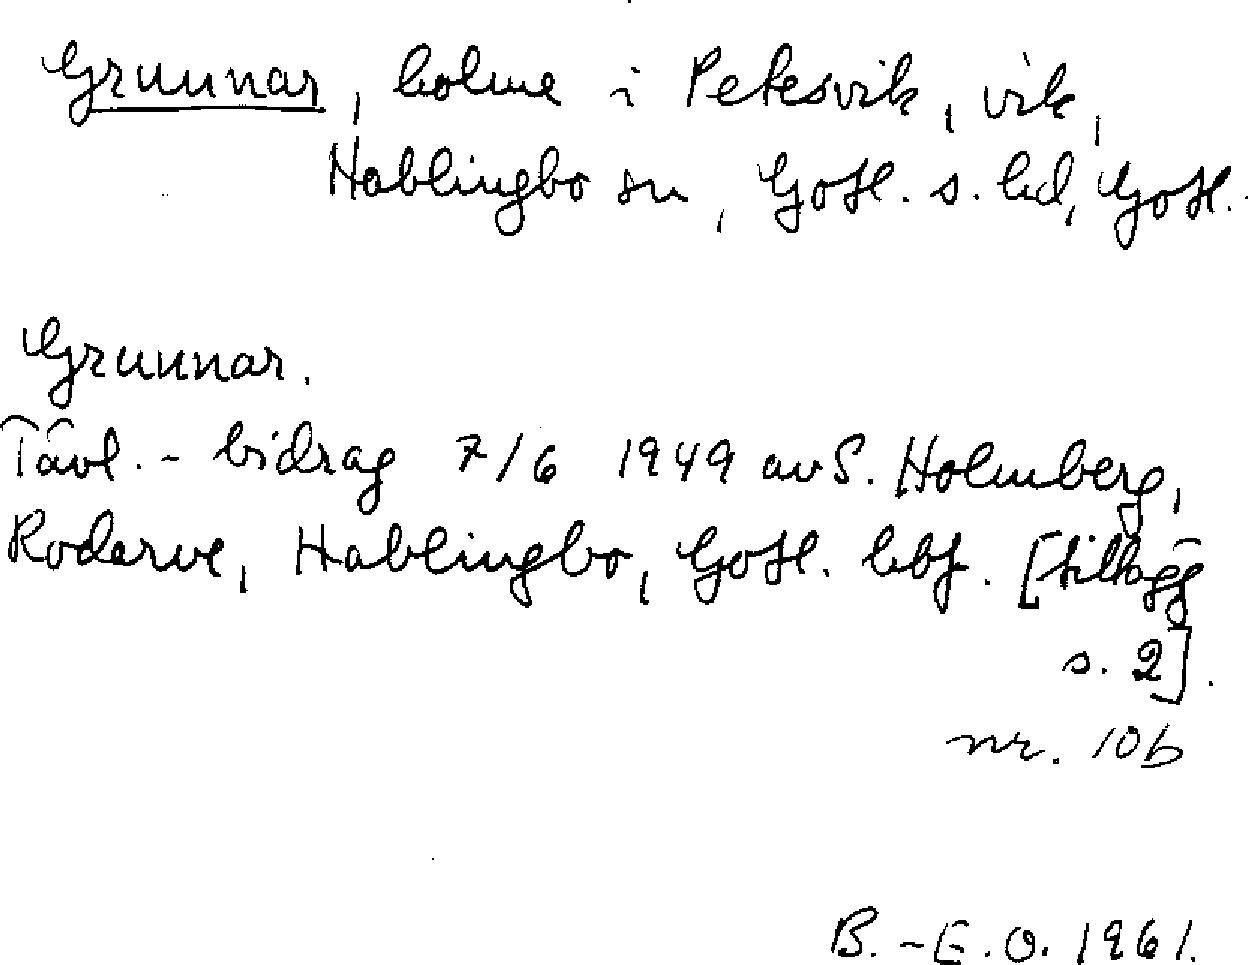 Grunnar, holme i Petesvik, vik,
Hablingbo sn, Gotl. s. hd, Gotl.
Grunnar.
Tävl.-bidrag 7/6 1949 av S. Holmberg,
Roderve, Hablingbo, Gotl. hbf. [tillägg
s. 2].
nr. 10b
B.-E.O. 1961.